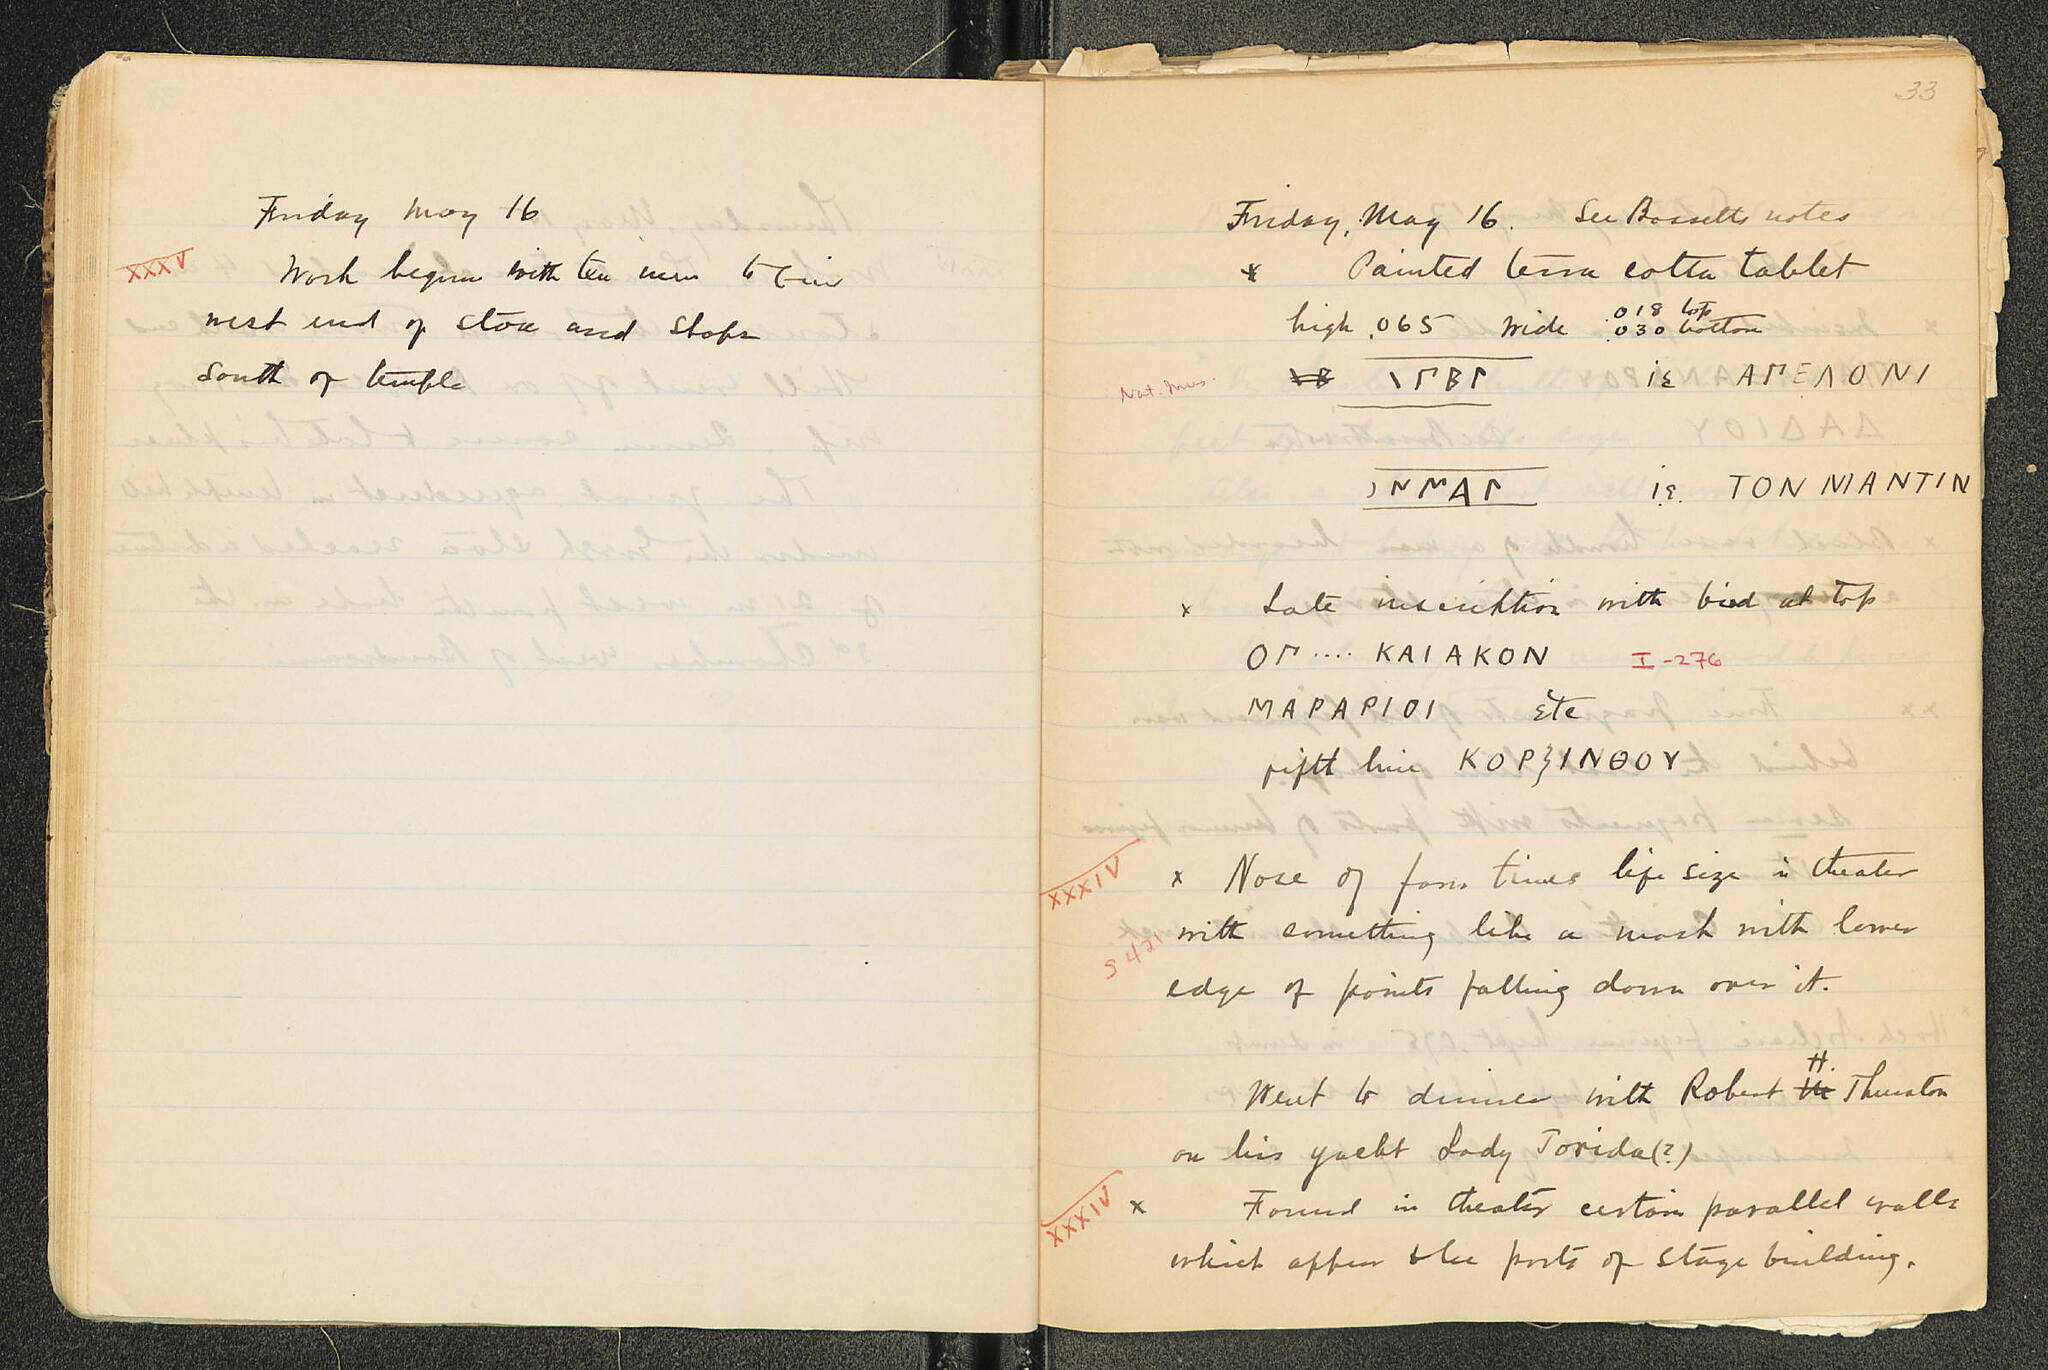 Friday May 16
XXXV
Work began with ten men to clear
west end of stoa and shops
South of temple
33
Friday, May 16. See Bassetts notes
x Painted terra cotta tablet
high .065 wide .018 top
.030 bottom
Nat. Mus.
ie ΑΓΕΛΟΝΙ
ie. ΤΟΝ ΜΑΝΤΙΝ
x Late inscription with bird at top
ΟΓ .... ΚΑΙΑΚΟΝ I-276
ΜΑΡΑΡΙΟΙ etc
fifth line ΚΟΡ}ΙΝΘΟΥ
XXXIV
x Nose of four times life size in theater
S 421
with something like a mask with lower
edge of points falling down over it.
Went to dinner with Robert H. Thurston
on his yacht Lady Torida(?)
XXXIV
x Found in theater certain parallel walls
which appear to be parts of stage building.